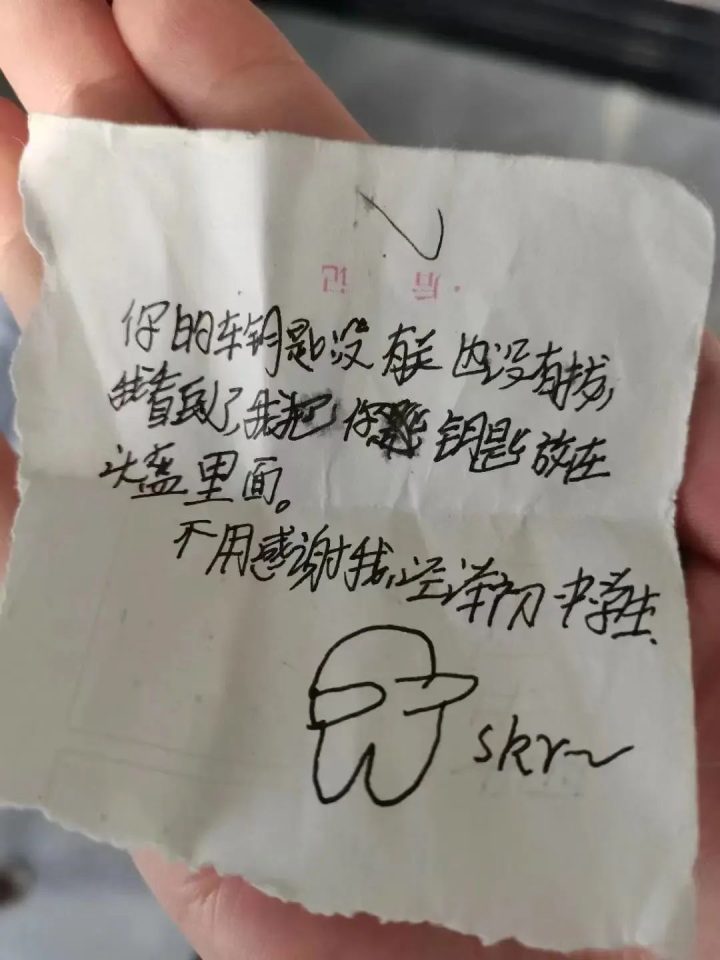 记
你的车钥匙没有关也没有拔,
我看到了,我把 你 钥匙放在
头盔里面。
不用感谢我,云泽初中学生.
skr~